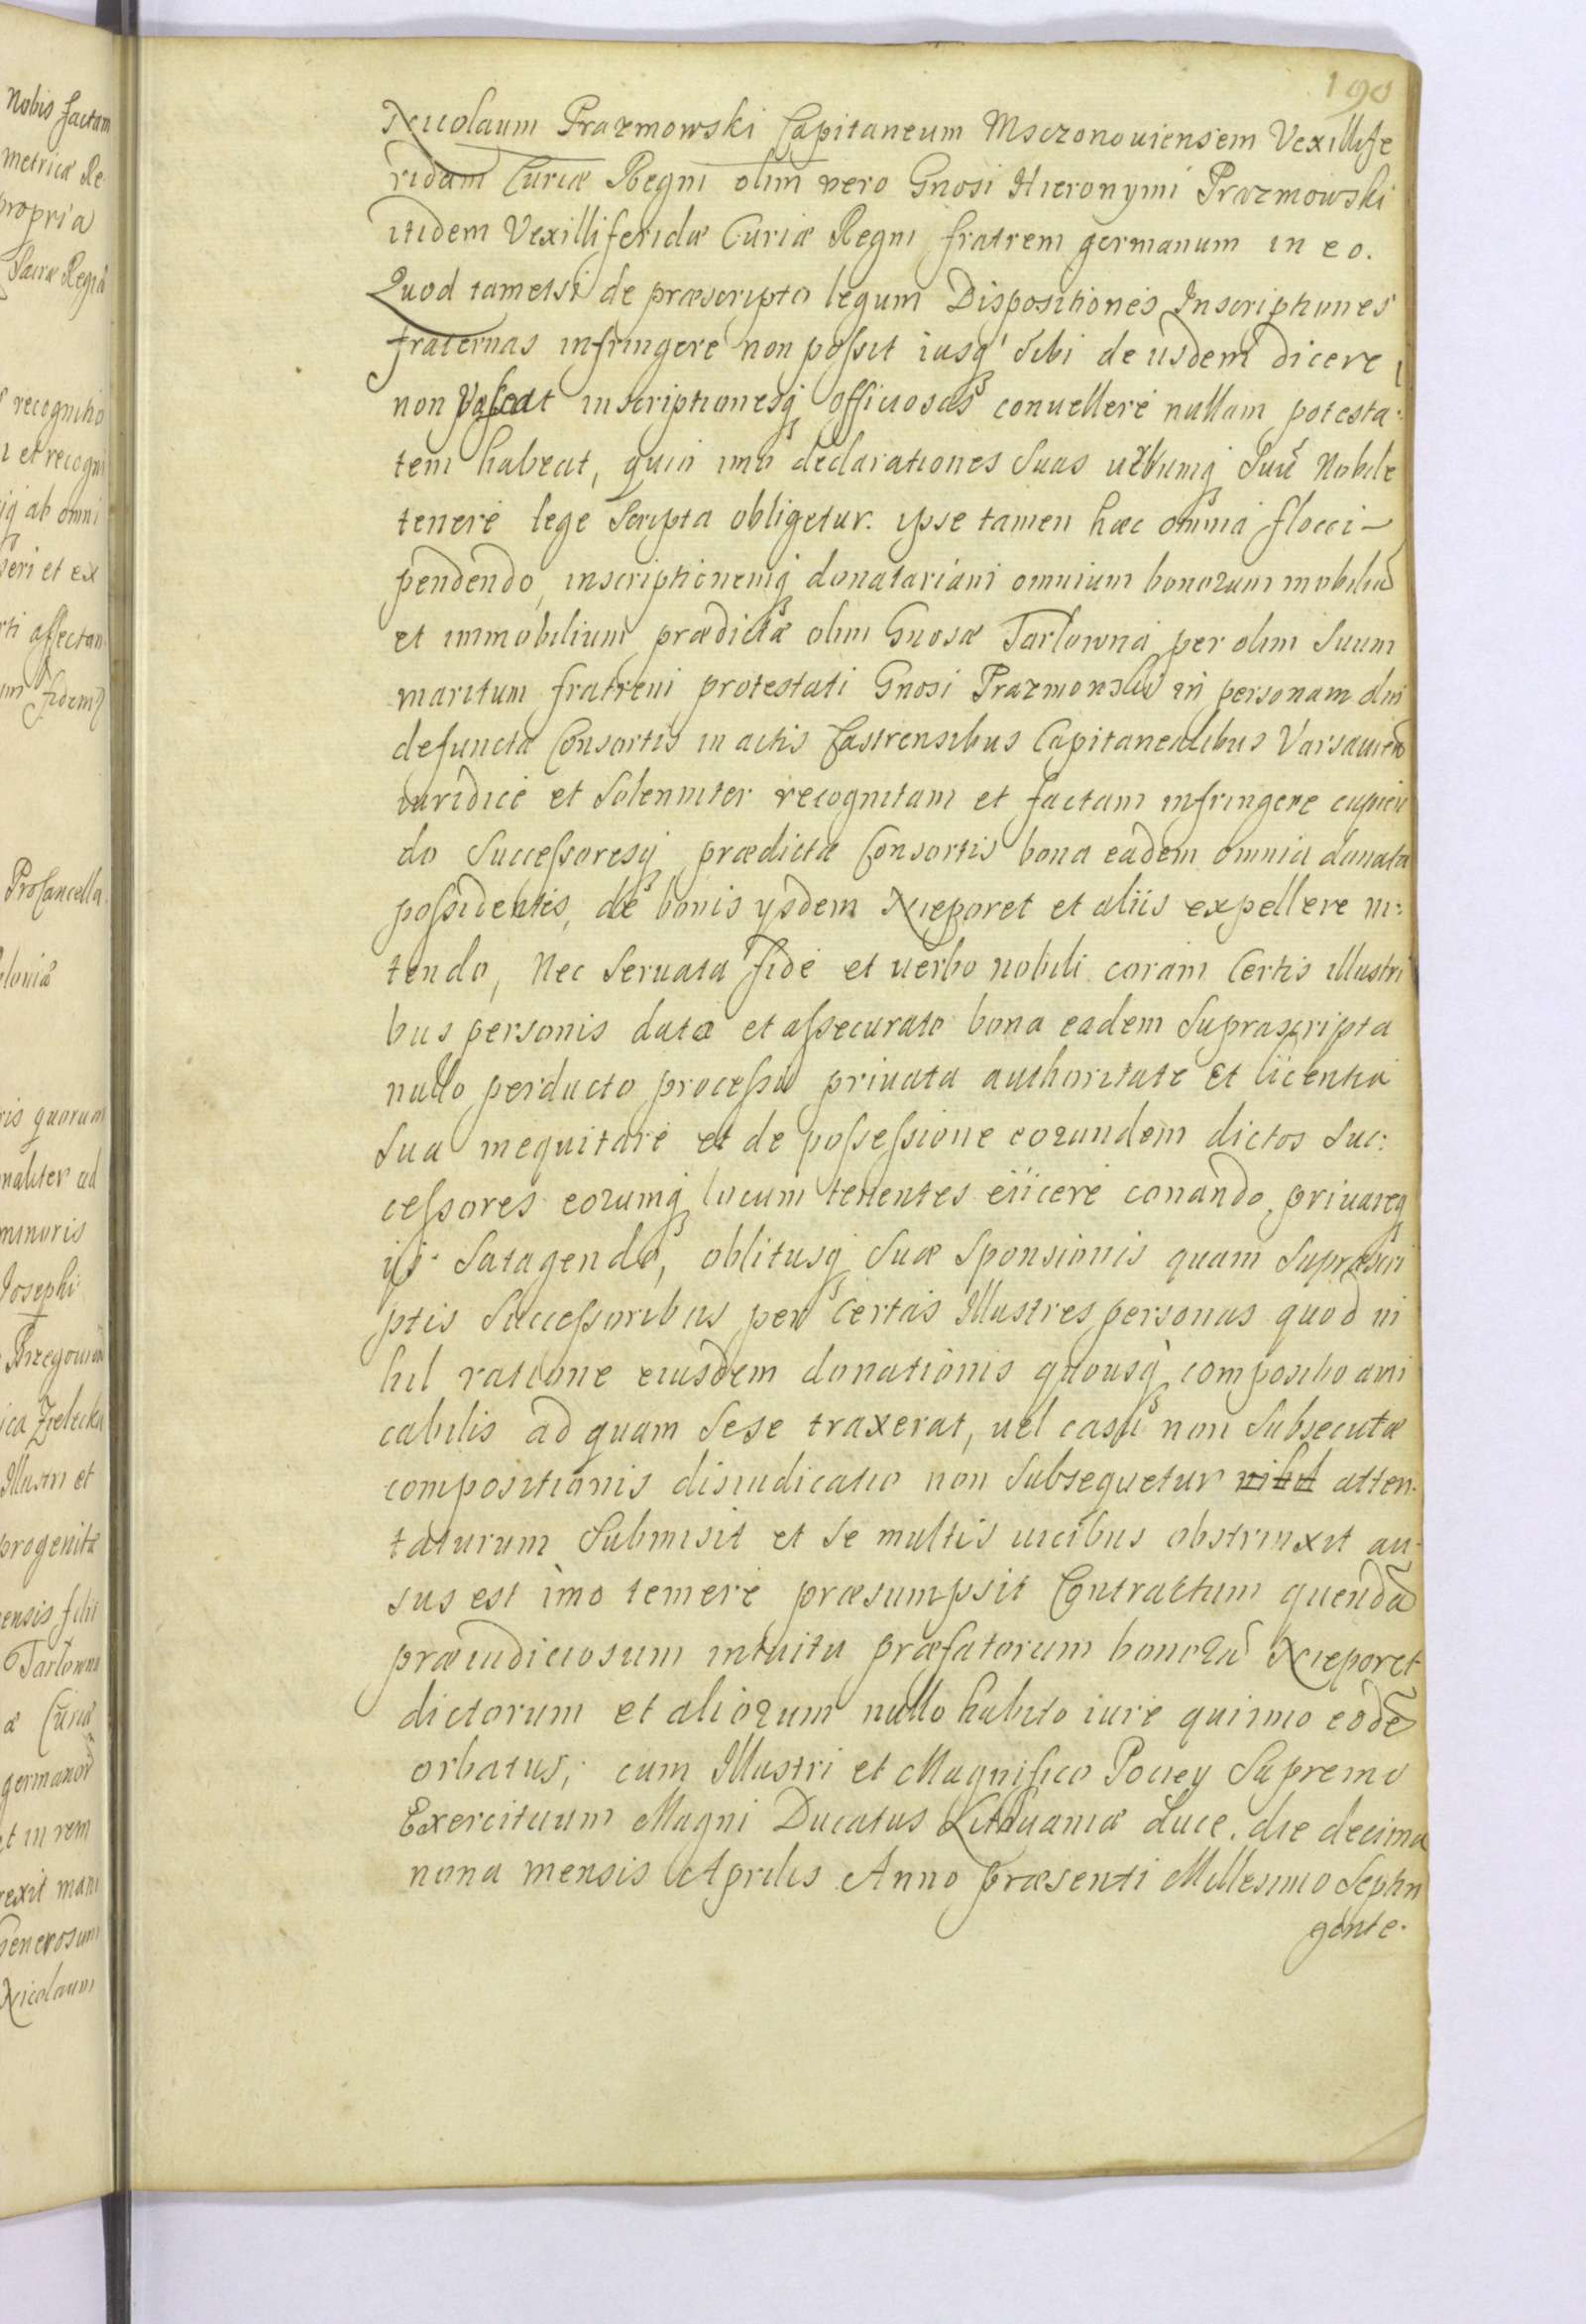 190
Nicolaum Prazmowski Capitaneum Msczonouiensem Vexillife
ridam Curiæ Regni olim vero Gnosi Hieronymi Prazmowski
itidem Vexilliferidæ Curiæ Regni fratrem germanum in eo.
Quod tametsi de præscripto legum Dispositiones Inscriptiones
fraternas infringere non possit iusq' sibi de iisdem dicere
non valeat inscriptionesq officiosas conuellere nullam potesta
tem habeat, quin imo declarationes suas uerbumq suũ Nobile
tenere lege scripta obligetur. ipse tamen hæc omnia flocci-
pendendo, inscriptionemq donatariam omnium bonorum mobiliũ
et immobilium prædictæ olim Gnosæ Tarlowna per olim suum
maritum fratrem protestati Gnosi Prazmowski in personam dni
defunctæ Consortis in actis Castrensibus Capitanealibus Varsauien
iuridice et solenniter recognitam et factam infringere cupien
do Successoresq prædictæ Consortis bona eadem omnia donata
possidentes, de bonis ysdem Nieporet et aliis expellere ni:
tendo, Nec seruata fide et uerbo nobili coram Certis illustri
bus personis data et assecurato bona eadem suprascripta
nullo perducto processu priuata authoritate et licentia
sua inequitare et de possessione eorundem dictos Suc:
cessores eorumq locum tenentes eiicere conando, priuareq
ijs satagendo, oblitusq suæ Sponsionis quam suprascri
ptis Successoribus per certas Illustres personas quod ni
hil ratione eiusdem donationis quousq compositio ami
cabilis ad quam sese traxerat, uel casu non subsecutæ
compositionis disiudicatio non subsequetur nihil atten-
taturum submisit et se multis uicibus obstrinxit au-
sus est imo temere præsumpsit Contractum quendã
præiudiciosum intuitu præfatorum bonorũ Nieporet
dictorum et aliorum nullo habito iure quinimo eodẽ
orbatus, cum Illustri et Magnifico Pociey Supremo
Exercituum Magni Ducatus Lithuaniæ Duce. die decima
nona mensis Aprilis Anno præsenti Millesimo Septin
gente.
Nobis factam
metricæ Re
propria
Sacræ Regiæ
recognitio
et recogni
ab omni
et ex
affectan
fidem
ProCancella
loniæ
quorum
naliter ad
minoris
Josephi
Zielecka
Illustri et
progenitæ
ensis filii
Tarlowna
æ Curiæ
germanor
t in rem
rexit mani
Generosum
Nicolaum